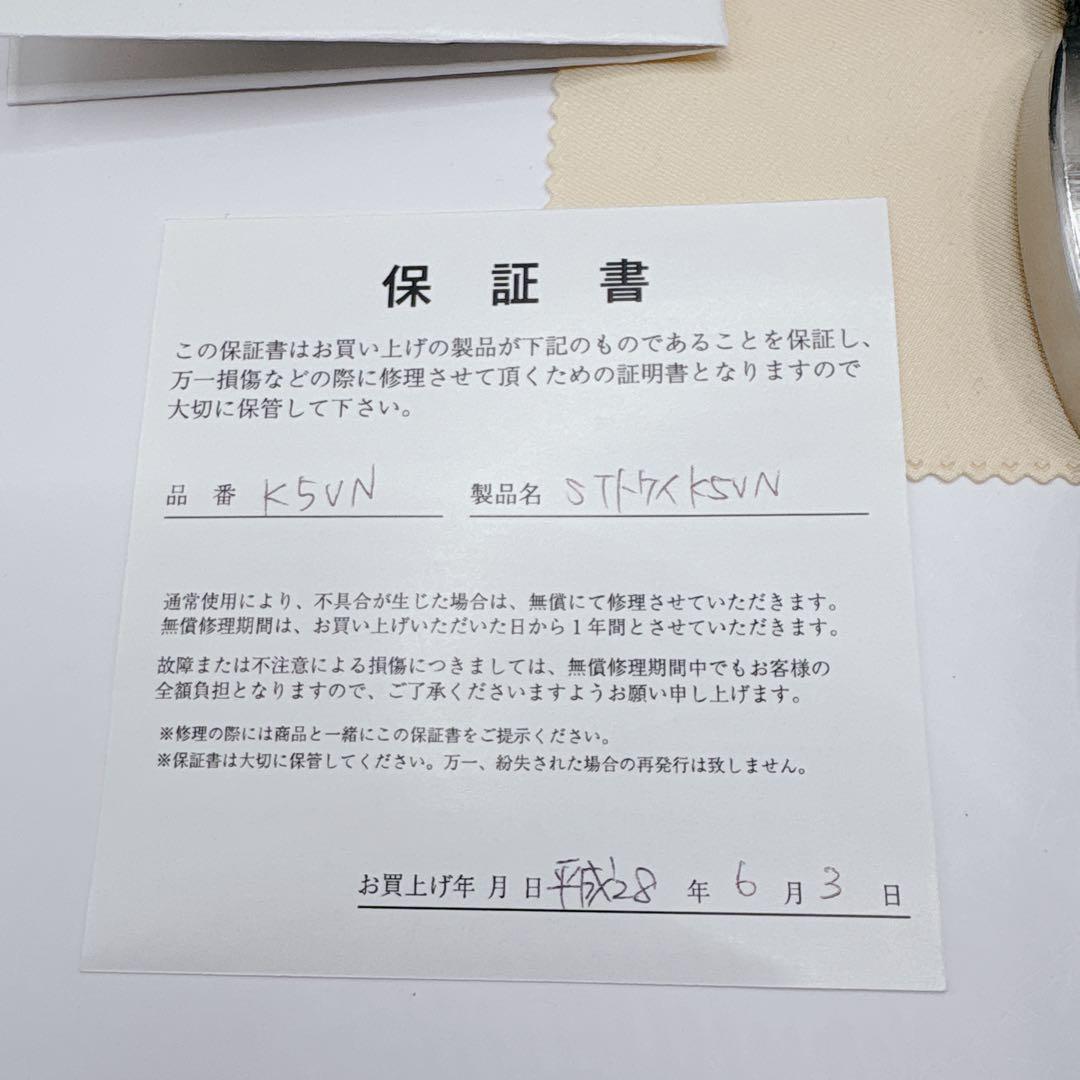 保証書
この保証書はお買い上げの製品が下記のものであることを保証し、
万一損傷などの際に修理させて頂くための証明書となりますので
大切に保管して下さい。
品番 K5VN 製品名 STトケイK5VN
通常使用により、不具合が生じた場合は、無償にて修理させていただきます。
無償修理期間は、お買い上げいただいた日から1年間とさせていただきます。
故障または不注意による損傷につきましては、無償修理期間中でもお客様の
全額負担となりますので、ご了承くださいますようお願い申し上げます。
※修理の際には商品と一緒にこの保証書をご提示ください。
※保証書は大切に保管してください。万一、紛失された場合の再発行は致しません。
お買上げ年月日 平成28年6月3日